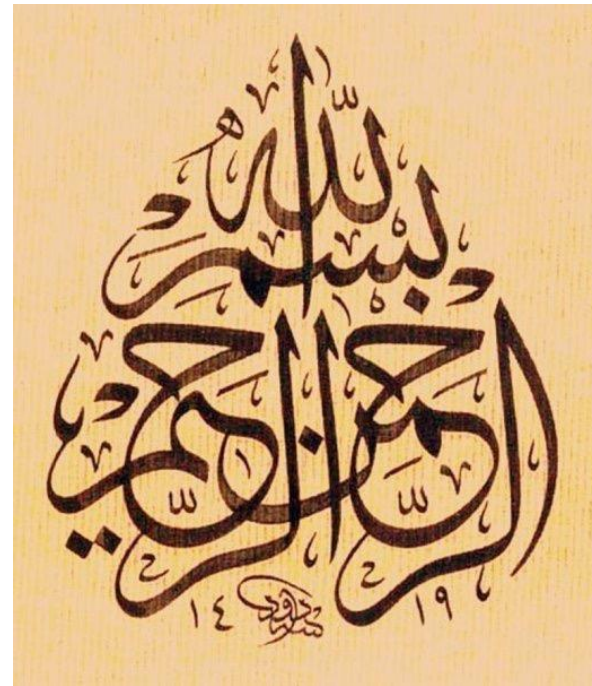 بِسْمِ اللّٰهِ
الرَّحْمٰنِ الرَّحِيمِ
١٤ ١٩